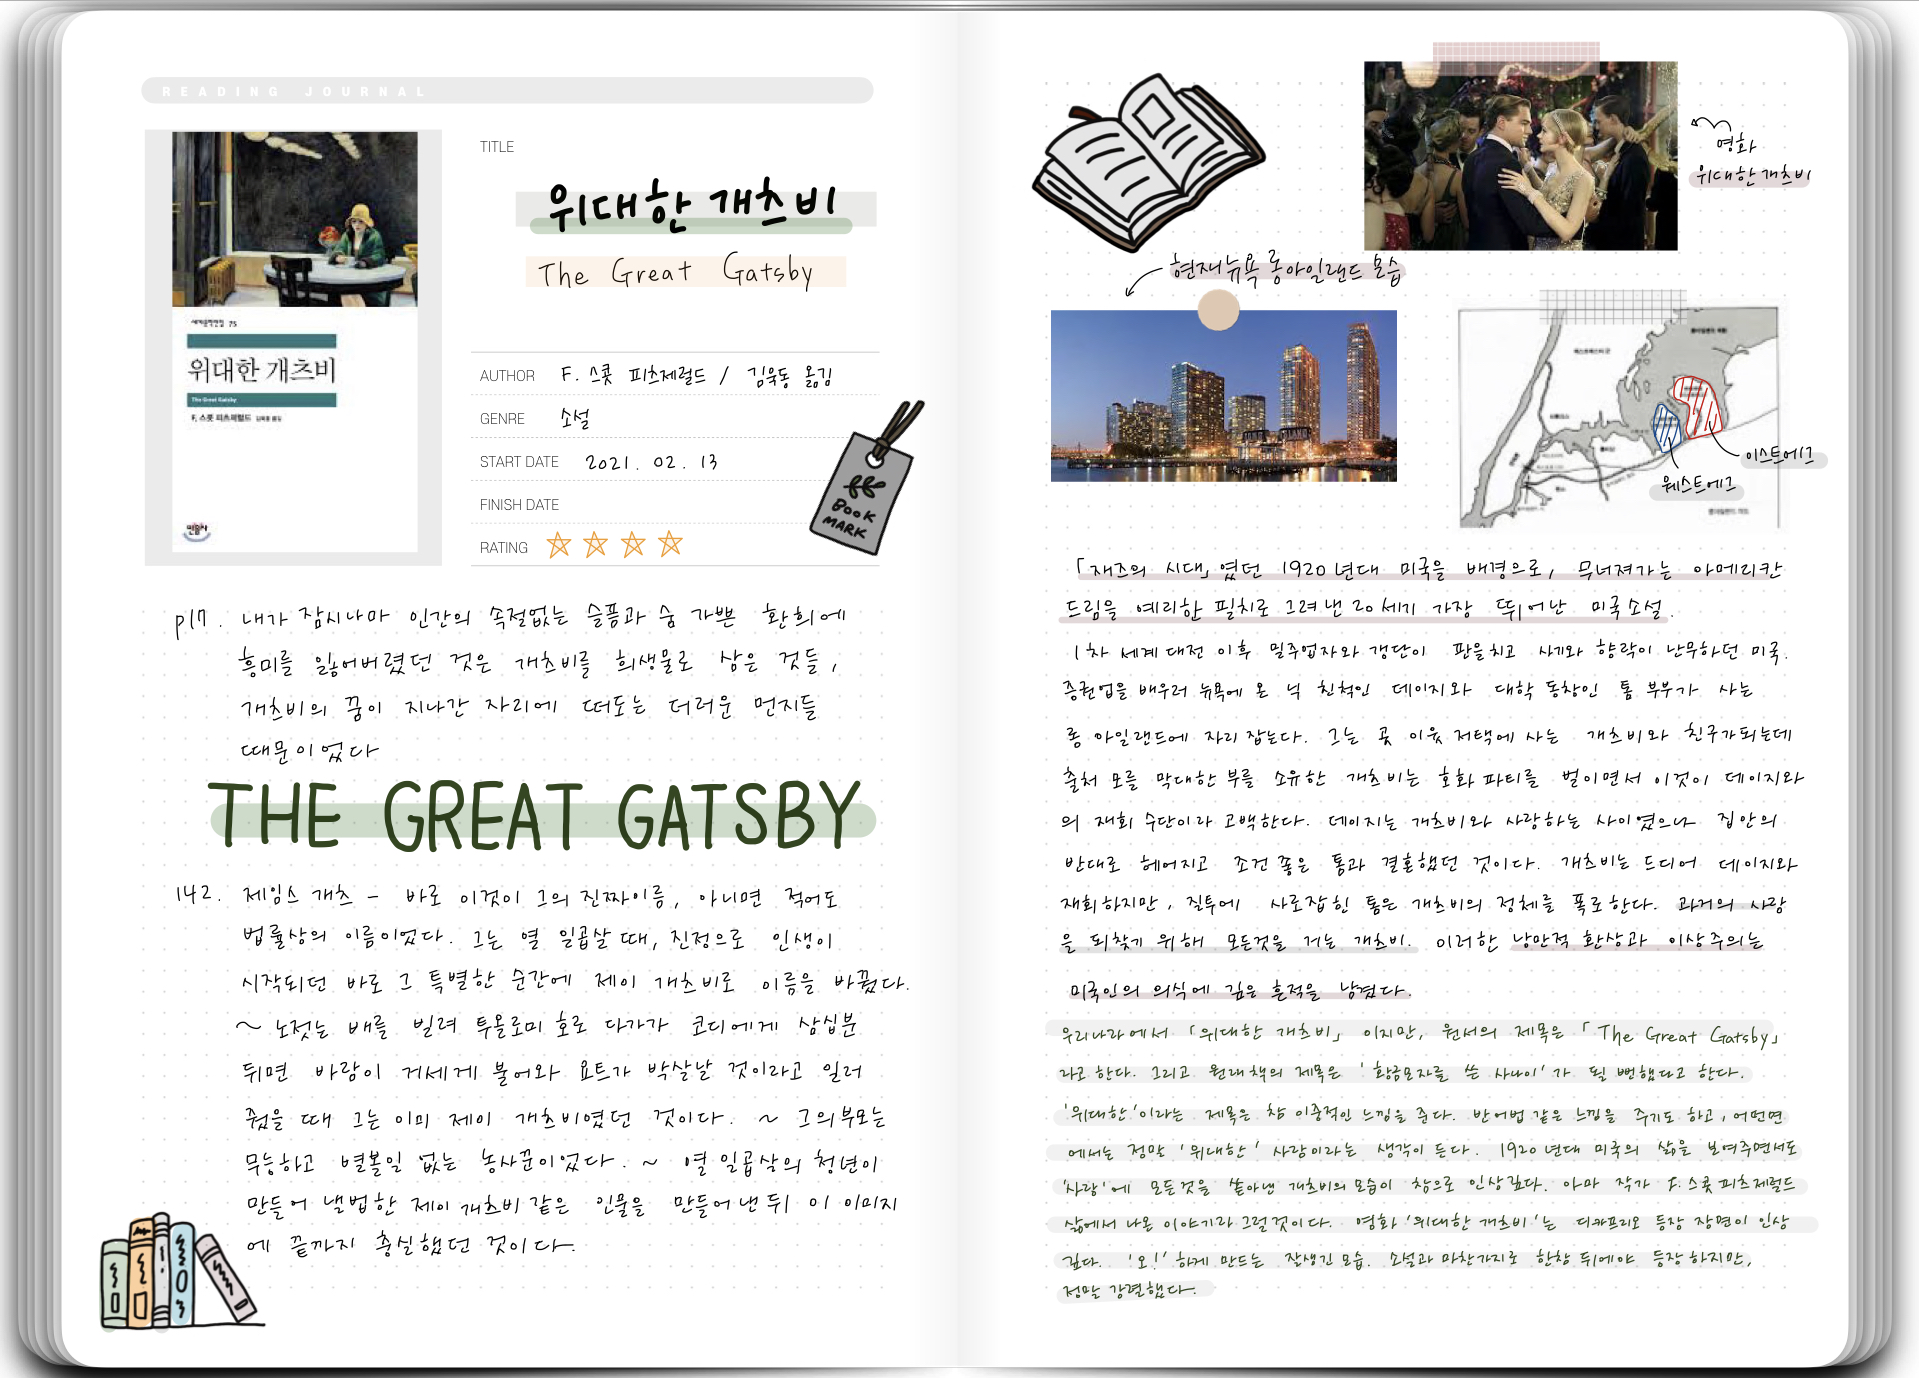 READING JOURNAL
세계문학전집 75
위대한 개츠비
The Great Gatsby
F. 스콧 피츠제럴드 김욱동 옮김
민음사
TITLE
위대한 개츠비
The Great Gatsby
AUTHOR F. 스콧 피츠제럴드 / 김욱동 옮김
GENRE 소설
START DATE 2021. 02. 13
FINISH DATE
RATING
BOOK
MARK
p17. 내가 잠시나마 인간의 속절없는 슬픔과 숨 가쁜 환희에
흥미를 잃어버렸던 것은 개츠비를 희생물로 삼은 것들,
개츠비의 꿈이 지나간 자리에 떠도는 더러운 먼지들
때문이었다
THE GREAT GATSBY
142. 제임스 개츠 - 바로 이것이 그의 진짜이름, 아니면 적어도
법률상의 이름이었다. 그는 열 일곱살 때, 진정으로 인생이
시작되던 바로 그 특별한 순간에 제이 개츠비로 이름을 바꿨다.
~ 노젓는 배를 빌려 투올로미 호로 다가가 코디에게 삼십분
뒤면 바람이 거세게 불어와 요트가 박살날 것이라고 일러
줬을 때 그는 이미 제이 개츠비였던 것이다. ~ 그의부모는
무능하고 별볼일 없는 농사꾼이었다. ~ 열 일곱살의 청년이
만들어 낼법한 제이 개츠비 같은 인물을 만들어낸 뒤 이 이미지
에 끝까지 충실했던 것이다.
영화
위대한 개츠비
현재 뉴욕 롱아일랜드 모습
이스트에그
웨스트에그
「재즈의 시대」였던 1920년대 미국을 배경으로, 무너져가는 아메리칸
드림을 예리한 필치로 그려낸 20세기 가장 뛰어난 미국소설.
1차 세계대전 이후 밀주업자와 갱단이 판을치고 사기와 향락이 난무하던 미국.
증권업을 배우러 뉴욕에 온 닉 친척인 데이지와 대학 동창인 톰 부부가 사는
롱 아일랜드에 자리 잡는다. 그는 곧 이웃 저택에 사는 개츠비와 친구가되는데
출처 모를 막대한 부를 소유한 개츠비는 호화 파티를 벌이면서 이것이 데이지와
의 재회 수단이라 고백한다. 데이지는 개츠비와 사랑하는 사이였으나 집안의
반대로 헤어지고 조건 좋은 톰과 결혼했던 것이다. 개츠비는 드디어 데이지와
재회하지만, 질투에 사로잡힌 톰은 개츠비의 정체를 폭로한다. 과거의 사랑
을 되찾기 위해 모든것을 거는 개츠비. 이러한 낭만적 환상과 이상주의는
미국인의 의식에 깊은 흔적을 남겼다.
우리나라에서 「위대한 개츠비」 이지만, 원서의 제목은 「The Great Gatsby」
라고 한다. 그리고 원래책의 제목은 '황금모자를 쓴 사나이'가 될 뻔했다고 한다.
'위대한'이라는 제목은 참 이중적인 느낌을 준다. 반어법 같은 느낌을 주기도 하고, 어떤면
에서는 정말 '위대한' 사랑이라는 생각이 든다. 1920년대 미국의 삶을 보여주면서도
'사랑'에 모든것을 쏟아낸 개츠비의 모습이 참으로 인상깊다. 아마 작가 F.스콧 피츠제럴드
삶에서 나온 이야기라 그럴것이다. 영화 '위대한 개츠비'는 디카프리오 등장 장면이 인상
깊다. '오!' 하게 만드는 잘생긴 모습. 소설과 마찬가지로 한참 뒤에야 등장하지만,
정말 강렬했다.